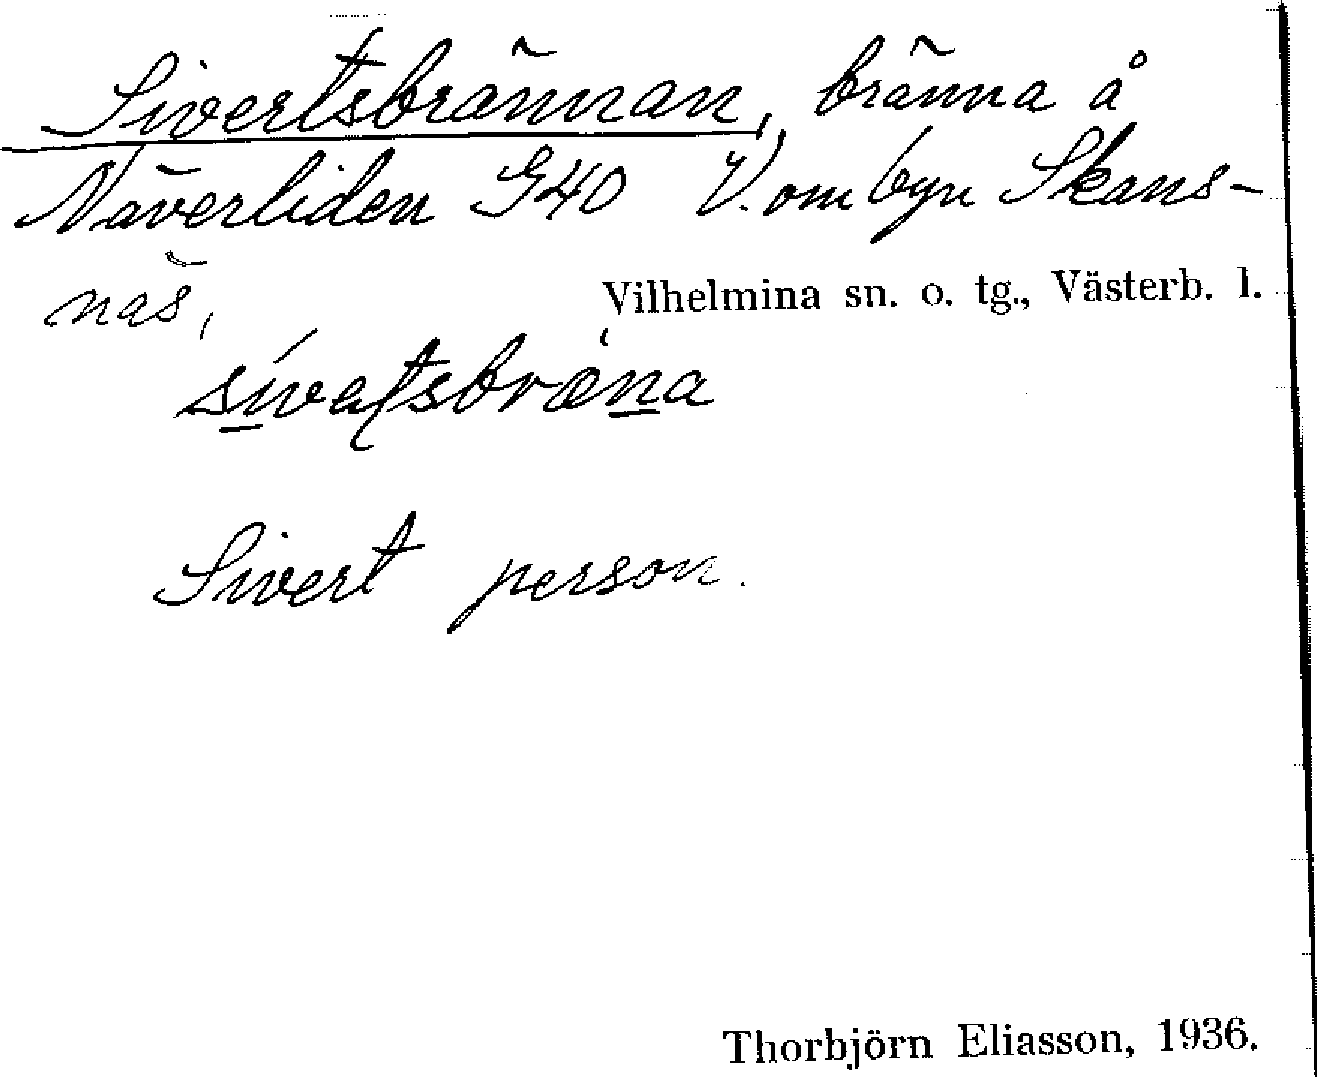 Sivertsbrännan, bränna å
Näverliden G40 V. om byn Skans-
näs,
Vilhelmina sn. o. tg., Västerb. l.
Sivert person.
Thorbjörn Eliasson, 1936.